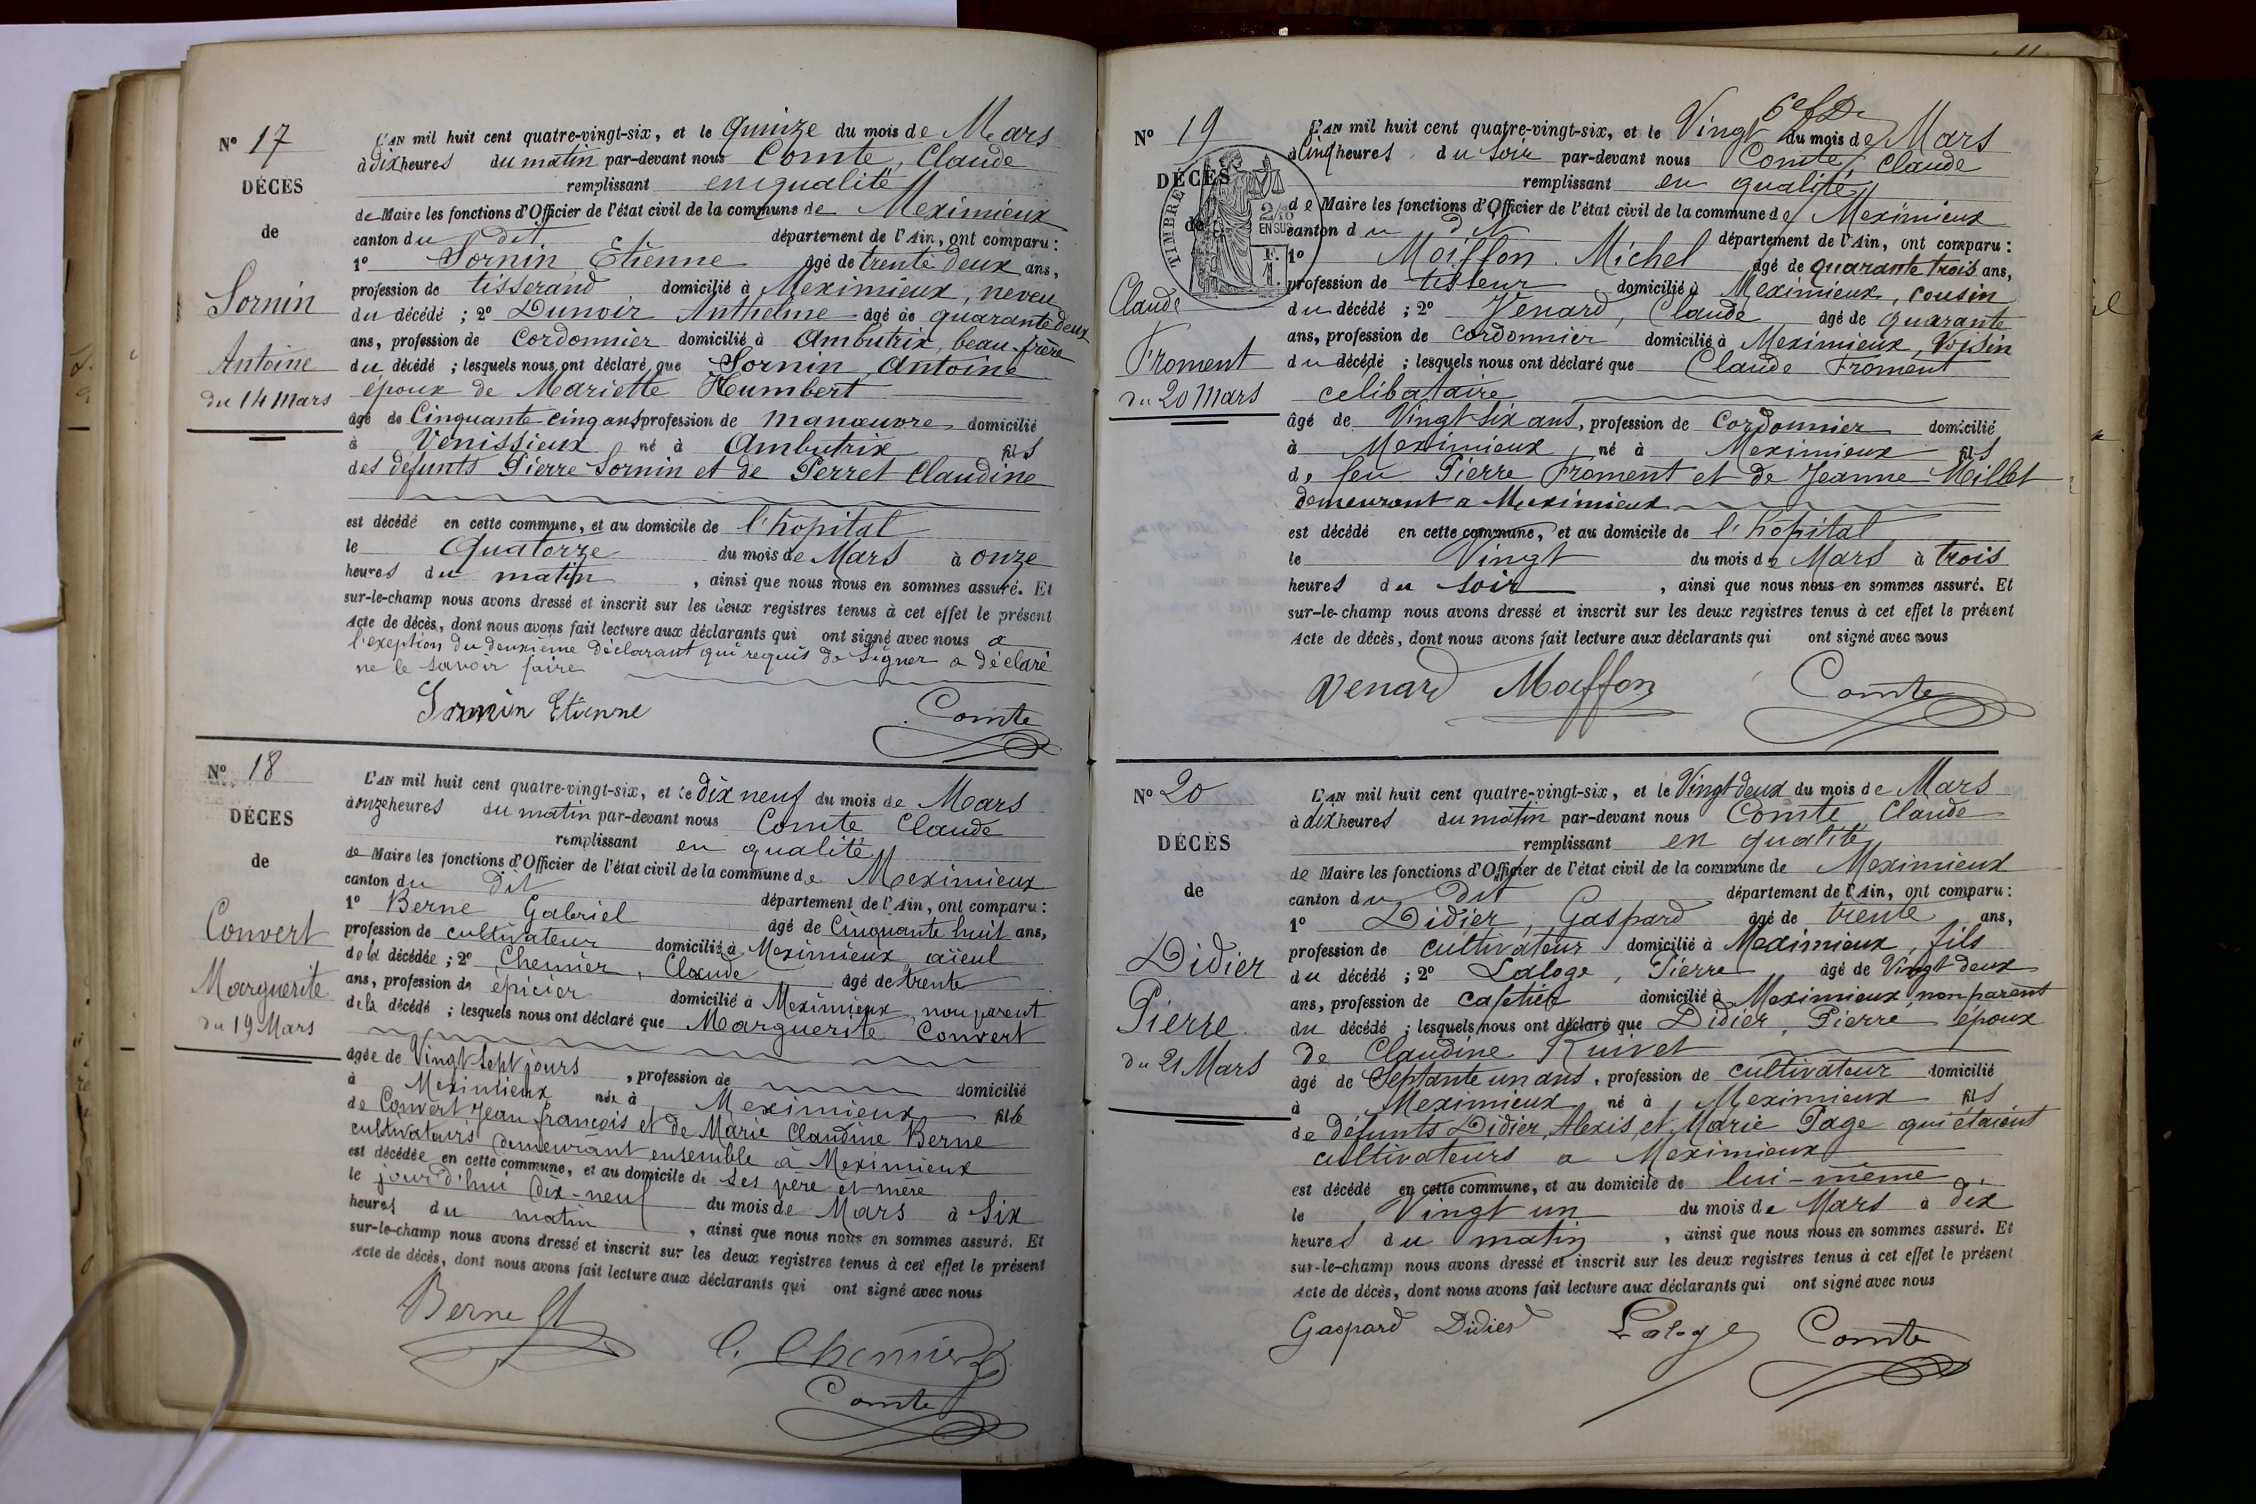 N° 17
DÉCÈS
de
Sornin
Antoine
du 14 Mars
L'AN mil huit cent quatre-vingt-six, et le quinze du mois de Mars
à dix heures du matin par-devant nous Comte, Claude
remplissant en qualité
de Maire les fonctions d'Officier de l'état civil de la commune de Meximieux
canton du dit département de l'Ain, ont comparu :
1° Sornin Etienne âgé de trente deux ans,
profession de tisserand domicilié à Meximieux, neveu
du décédé ; 2° Dunoir Anthelme âgé de quarante deux
ans, profession de Cordonnier domicilié à Ambutrix, beau-frère
du décédé ; lesquels nous ont déclaré que Sornin, Antoine
époux de Mariette Humbert
âgé de Cinquante-cinq ans profession de manœuvre domicilié
à Venissieux né à Ambutrix fils
des défunts Pierre Sornin et de Perret Claudine
est décédé en cette commune, et au domicile de l'hôpital
le Quatorze du mois de Mars à onze
heures du matin , ainsi que nous nous en sommes assuré. Et
sur-le-champ nous avons dressé et inscrit sur les deux registres tenus à cet effet le présent
Acte de décès, dont nous avons fait lecture aux déclarants qui ont signé avec nous a
l'exeption du deuxième déclarant qui requis de signer a déclaré
ne le savoir faire
Sornin Etienne Comte
N° 18
DÉCES
de
Convert
Marguerite
du 19 Mars
L'AN mil huit cent quatre-vingt-six, et le dix neuf du mois de Mars
à onze heures du matin par-devant nous Comte Claude
remplissant en qualité
de Maire les fonctions d'Officier de l'état civil de la commune de Meximieux
canton du dit département de l'Ain, ont comparu :
1° Berne Gabriel âgé de Cinquante huit ans,
profession de cultivateur domicilié à Meximieux aïeul
de la décédée ; 2° Chemier, Claude âgé de trente
ans, profession de épicier domicilié à Meximieux, non parent
de la décédé ; lesquels nous ont déclaré que Marguerite Convert
âgée de Vingt sept jours , profession de domicilié
à Meximieux née à Meximieux fille
de Convert Jean françois et de Marie Claudine Berne
cultivateurs demeurant ensemble à Meximieux
est décédée en cette commune, et au domicile de ses père et mère
le jourd'hui dix-neuf du mois de Mars à Six
heures du matin , ainsi que nous nous en sommes assuré. Et
sur-le-champ nous avons dressé et inscrit sur les deux registres tenus à cet effet le présent
Acte de décès, dont nous avons fait lecture aux déclarants qui ont signé avec nous
Berne
C. Chemier
Comte
N° 19
DÉCÈS
de
TIMBRE
2/10
EN SUS
F.
1.
Claude
Froment
du 20 Mars
L'AN mil huit cent quatre-vingt-six, et le Vingt du mois de Mars
à Cinq heures du soir par-devant nous Comte, Claude
remplissant en qualité
de Maire les fonctions d'Officier de l'état civil de la commune de Meximieux
canton du dit département de l'Ain, ont comparu :
1° Moiffon Michel âgé de quarante trois ans,
profession de tisseur domicilié à Meximieux, cousin
du décédé ; 2° Venard, Claude âgé de quarante
ans, profession de Cordonnier domicilié à Meximieux, Voisin
du décédé ; lesquels nous ont déclaré que Claude Froment
celibataire
âgé de Vingt-six ans, profession de Cordonnier domicilié
à Meximieux né à Meximieux fils
de feu Pierre Froment et de Jeanne Millet
demeurant a Meximieux
est décédé en cette commune, et au domicile de l'hôpital
le Vingt du mois de Mars à trois
heures du soir , ainsi que nous nous en sommes assuré. Et
sur-le-champ nous avons dressé et inscrit sur les deux registres tenus à cet effet le présent
Acte de décès, dont nous avons fait lecture aux déclarants qui ont signé avec nous
Venard Moiffon Comte
N° 20
DÉCÈS
de
Didier
Pierre
du 21 Mars
L'AN mil huit cent quatre-vingt-six, et le Vingt deux du mois de Mars
à dix heures du matin par-devant nous Comte Claude
remplissant en qualité
de Maire les fonctions d'Officier de l'état civil de la commune de Meximieux
canton du dit département de l'Ain, ont comparu :
1° Didier, Gaspard âgé de trente ans,
profession de cultivateur domicilié à Meximieux, fils
du décédé ; 2° Laloge, Pierre âgé de Vingt deux
ans, profession de cafetier domicilié à Meximieux non parent
du décédé ; lesquels nous ont déclaré que Didier, Pierre époux
de Claudine Ruivet
âgé de Septante un ans, profession de cultivateur domicilié
à Meximieux né à Meximieux fils
de défunts Didier, Alexis et Marie Page qui étaient
cultivateurs a Meximieux
est décédé en cette commune, et au domicile de lui-même
le Vingt un du mois de Mars à dix
heures du matin , ainsi que nous nous en sommes assuré. Et
sur-le-champ nous avons dressé et inscrit sur les deux registres tenus à cet effet le présent
Acte de décès, dont nous avons fait lecture aux déclarants qui ont signé avec nous
Gaspard Didier Laloge Comte